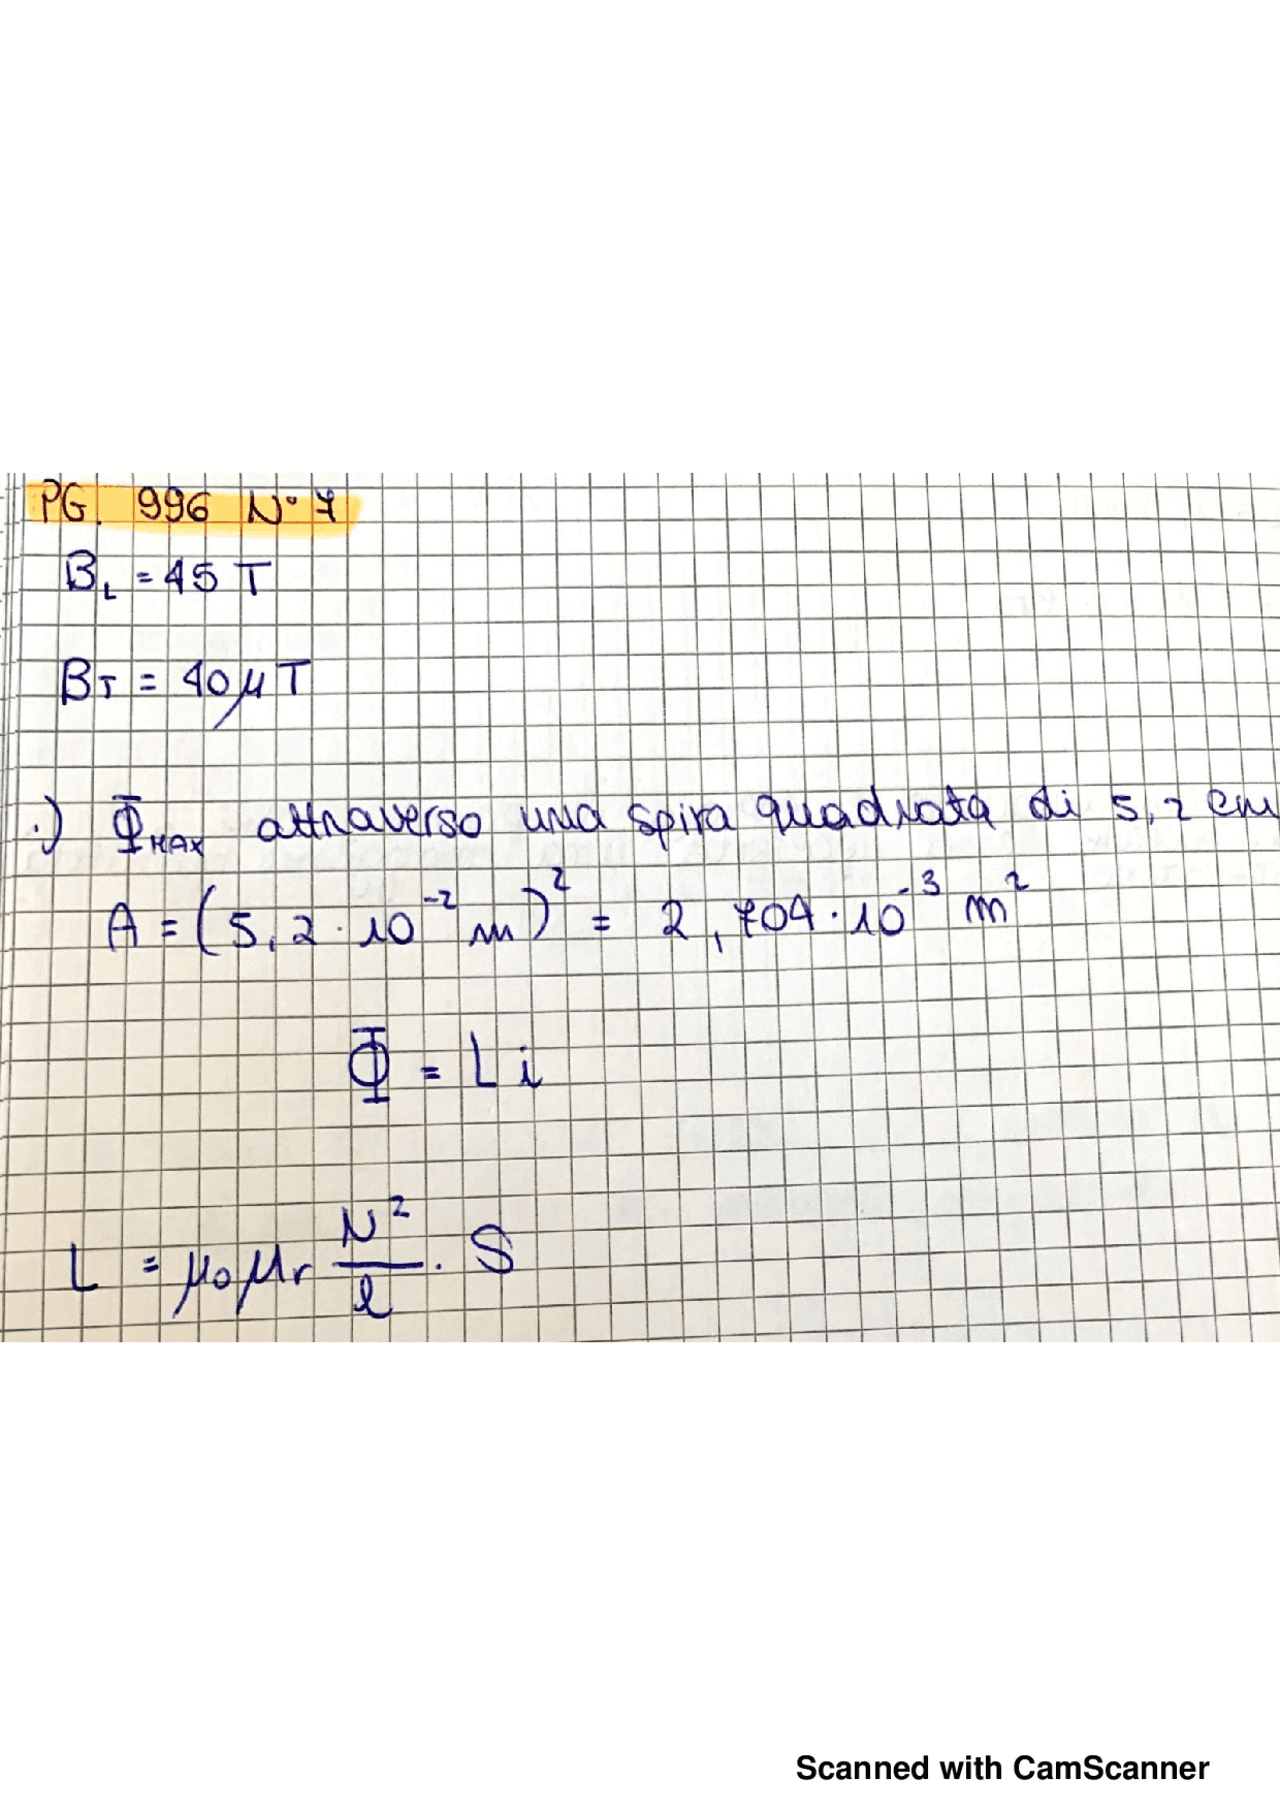 PG. 996 N° 7
B_L = 45 T
B_T = 40 μT
.) Φ_MAX attraverso una spira quadrata di 5,2 cm
A = (5,2 · 10^-2 m)^2 = 2,704 · 10^-3 m^2
Φ = Li
L = μ0 μr N^2/l · S
Scanned with CamScanner